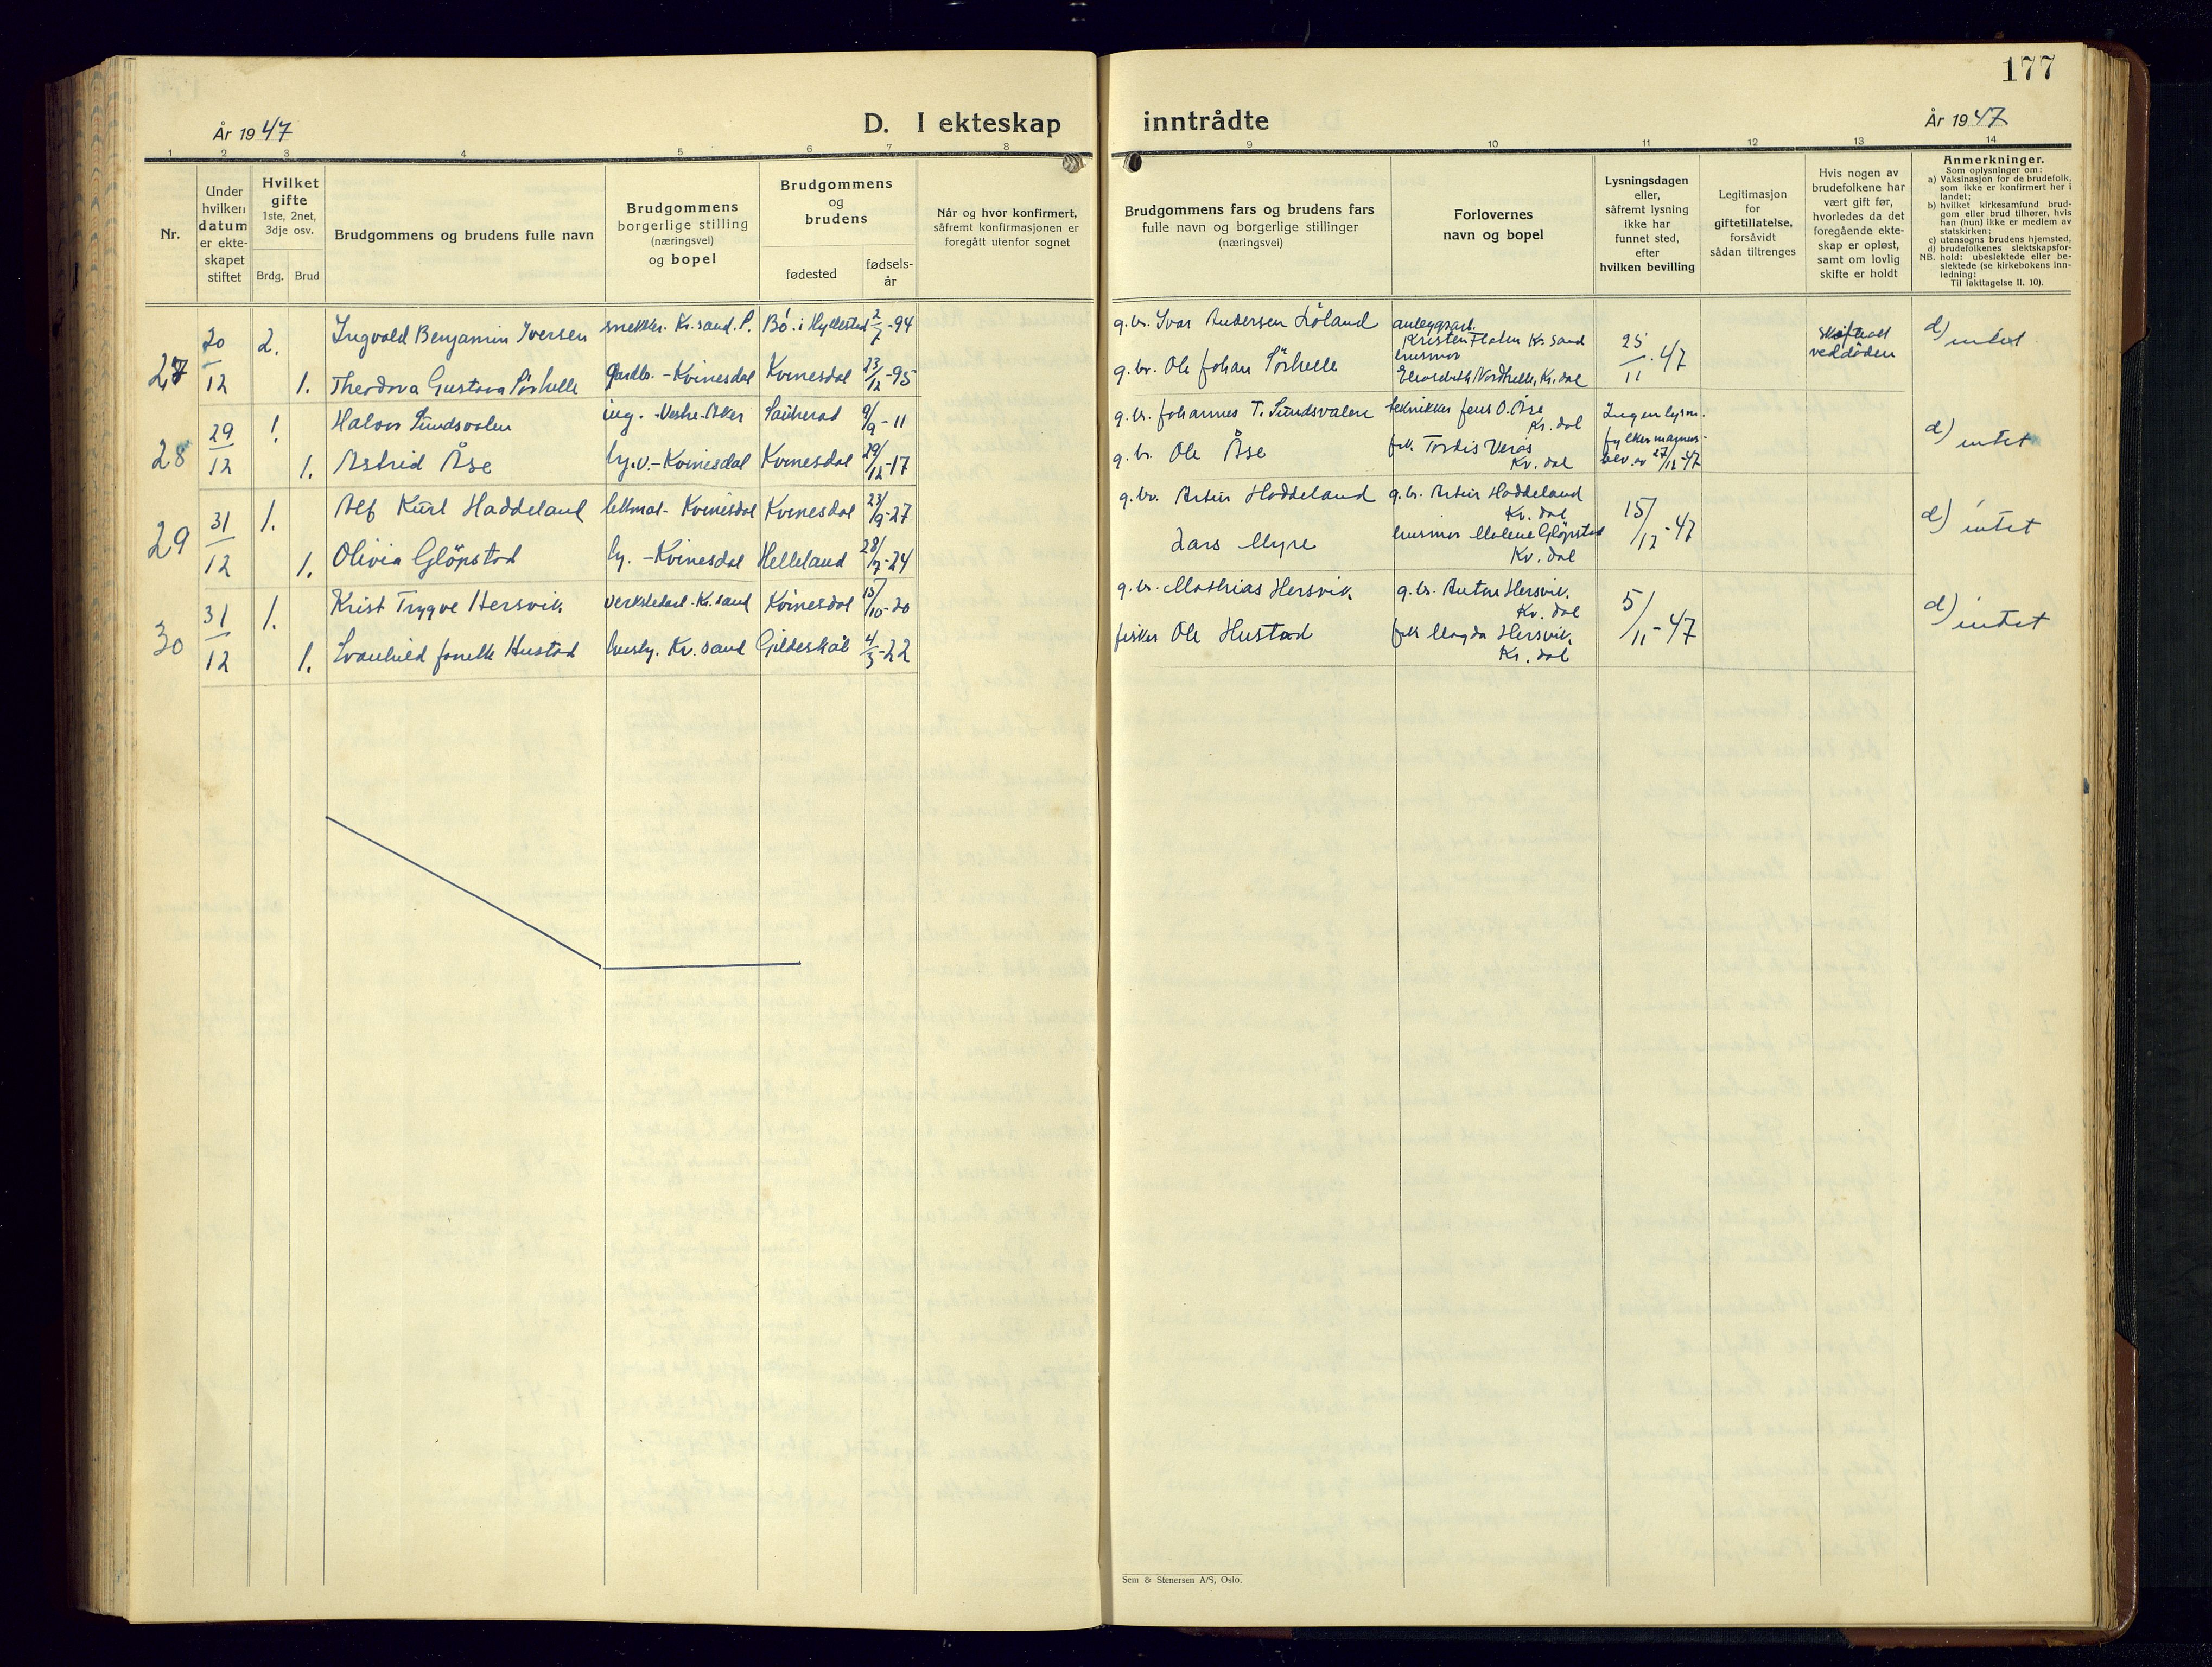 177
År 1947
D. I ekteskap inntrådte
År 1947
1 2 3 4 5 6 7 8 9 10 11 12 13 14
Nr.
Under
hvilken
datum
er ekte-
skapet
stiftet
Hvilket
gifte
1ste, 2net,
3dje osv.
Brdg. Brud
Brudgommens og brudens fulle navn
Brudgommens
borgerlige stilling
(næringsvei)
og bopel
Brudgommens
og
brudens
fødested
fødsels-
år
Når og hvor konfirmert,
såfremt konfirmasjonen er
foregått utenfor sognet
Brudgommens fars og brudens fars
fulle navn og borgerlige stillinger
(næringsvei)
Forlovernes
navn og bopel
Lysningsdagen
eller,
såfremt lysning
ikke har
funnet sted,
efter
hvilken bevilling
Legitimasjon
for
giftetillatelse,
forsåvidt
sådan tiltrenges
Hvis nogen av
brudefolkene har
vært gift før,
hvorledes da det
foregående ekte-
skap er opløst,
samt om lovlig
skifte er holdt
Anmerkninger.
Som oplysninger om:
a) Vaksinasjon for de brudefolk,
som ikke er konfirmert her i
landet;
b) hvilket kirkesamfund brud-
gom eller brud tilhører, hvis
han (hun) ikke er medlem av
statskirken;
c) utensogns brudens hjemsted,
d) brudefolkenes slektskapsfor-
NB. hold: ubeslektede eller be-
slektede (se kirkebokens inn-
ledning:
Til iakttagelse II. 10).
27 20/12 2. Ingvald Benjamin Iversen snekker. Kr.sand. S. Bö. i Hyllestad 2/7-94 g.br. Ivar Andersen Löland anleggsarb.
Kristen Flaten Kr. sand 25/11-47 Skifte holdt
ved döden d) intet
1. Theodora Gustava Sörhelle gardbr. - Kvinesdal Kvinesdal 23/12-95 g.br. Ole Johan Sörhelle husmor
Elisabeth Nordhelle, Kv. dal
28 29/12 1. Halvor Sundsvalen ing. - Vestre-Aker Sauherad 9/9-11 g.br. Johannes T. Sundsvalen tekniker Jens O. Åse
Kv. dal Ingen lysn.
fylkesmannens-
bev. av 27/12-47 d) intet
1. Astrid Åse hj.v. - Kvinesdal Kvinesdal 29/12-17 g.br. Ole Åse frk. Tordis Verås
Kv. dal
29 31/12 1. Alf Kurt Haddeland - Kvinesdal Kvinesdal 23/9-27 g.br. Artur Haddeland g.br. Artur Haddeland
Kv. dal 15/12-47 d) intet
1. Olivia Glöpstad hj. - Kvinesdal Helleland 28/7-24 Lars Myre husmor Malene Glöpstad
Kv. dal
30 31/12 1. Krist Trygve Hersvik verkstedarb. Kr. sand Kvinesdal 15/10-20 g.br. Mathias Hersvik g.br. Anton Hersvik.
Kv. dal 5/11-47 d) intet
1. Svanhild Jonette Hustad hushj. Kr. sand Gildeskål 4/3-22 fisker Ole Hustad frk Magda Hersvik,
Kv. dal
Sem & Stenersen A/S, Oslo.